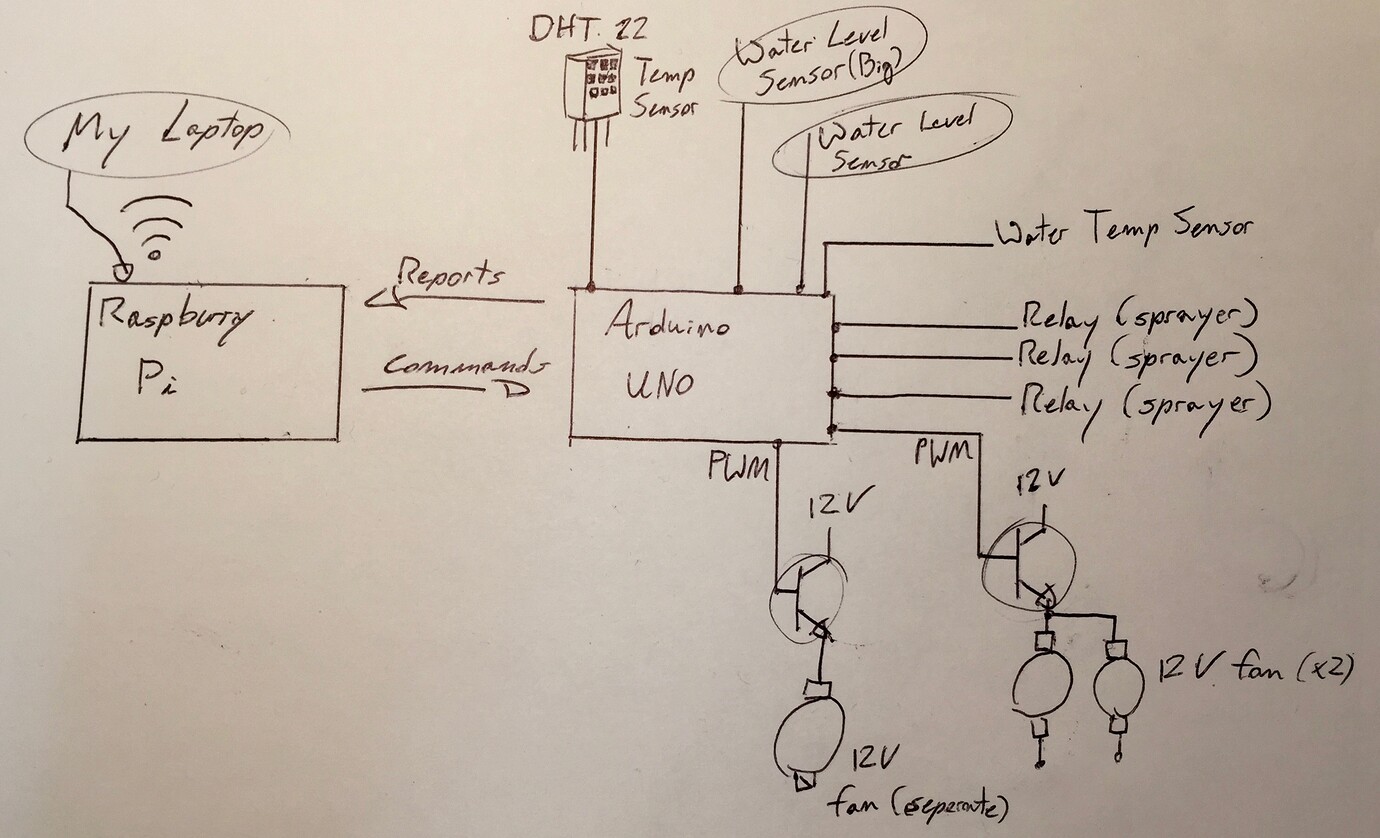 DHT 22
Temp
Sensor
Water Level
Sensor (Big)
Water Level
Sensor
My Laptop
Water Temp Sensor
Reports
Raspburry
Pi
Commands
Arduino
UNO
Relay (sprayer)
Relay (sprayer)
Relay (sprayer)
PWM
PWM
12V
12V
12V fan (x2)
12V
fan (seperate)